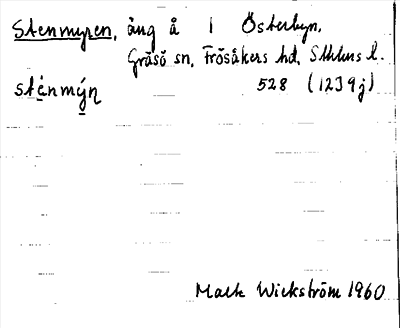 Stenmyren, äng å 1 Österbyn,
Gräsö sn, Frösåkers hd, Sthlms l.
sténmýn 528 (1239j)
Mats Wickström 1960